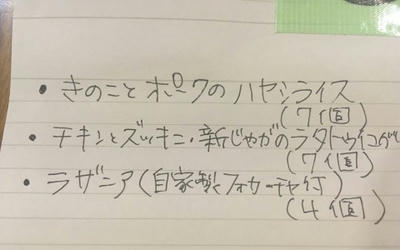 ・きのことポークのハヤシライス
(7個)
・チキンとズッキーニ・新じゃがのラタトゥイユグリル
(7個)
・ラザニア(自家製フォカッチャ付)
(4個)